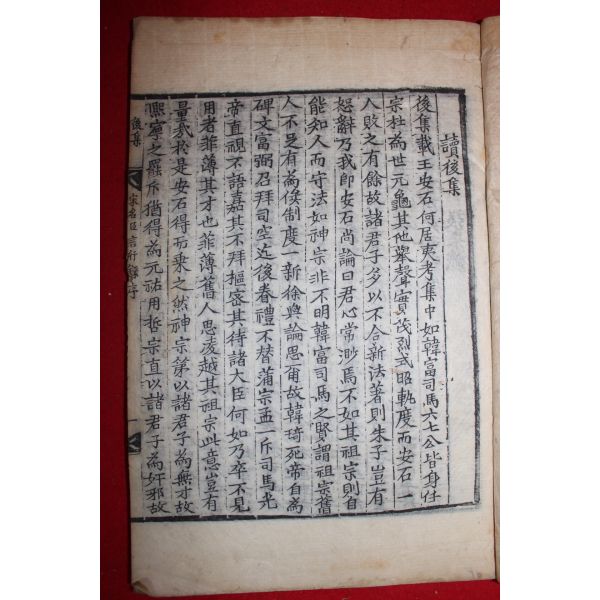 讀後集
後集載王安石何居夷考集中如韓富司馬六七公皆身任
宗社為世元龜其他舉聲實茂烈式昭軌度而安石一
人敗之有餘故諸君子多以不合新法著則朱子豈有
恕辭乃我即安石尚論曰君心常渺焉不如其祖宗則自
能知人而守法如神宗非不明韓富司馬之賢謂祖宗舊
人不足有為倐制度一新徐與論思爾故韓琦死帝自為
碑文富弼召拜司空近後眷禮不替蒲宗孟一斥司馬光
帝直視不語嘉其不拜樞密其待諸大臣何如乃卒不見
用者菲薄其才也菲薄舊人思凌越其祖宗此意豈有
量哉於是安石得而乘之然神宗第以諸君子為無才故
熙寧之罷斥猶得為元祐用哲宗直以諸君子為奸邪故
後集
宋名臣言行錄序